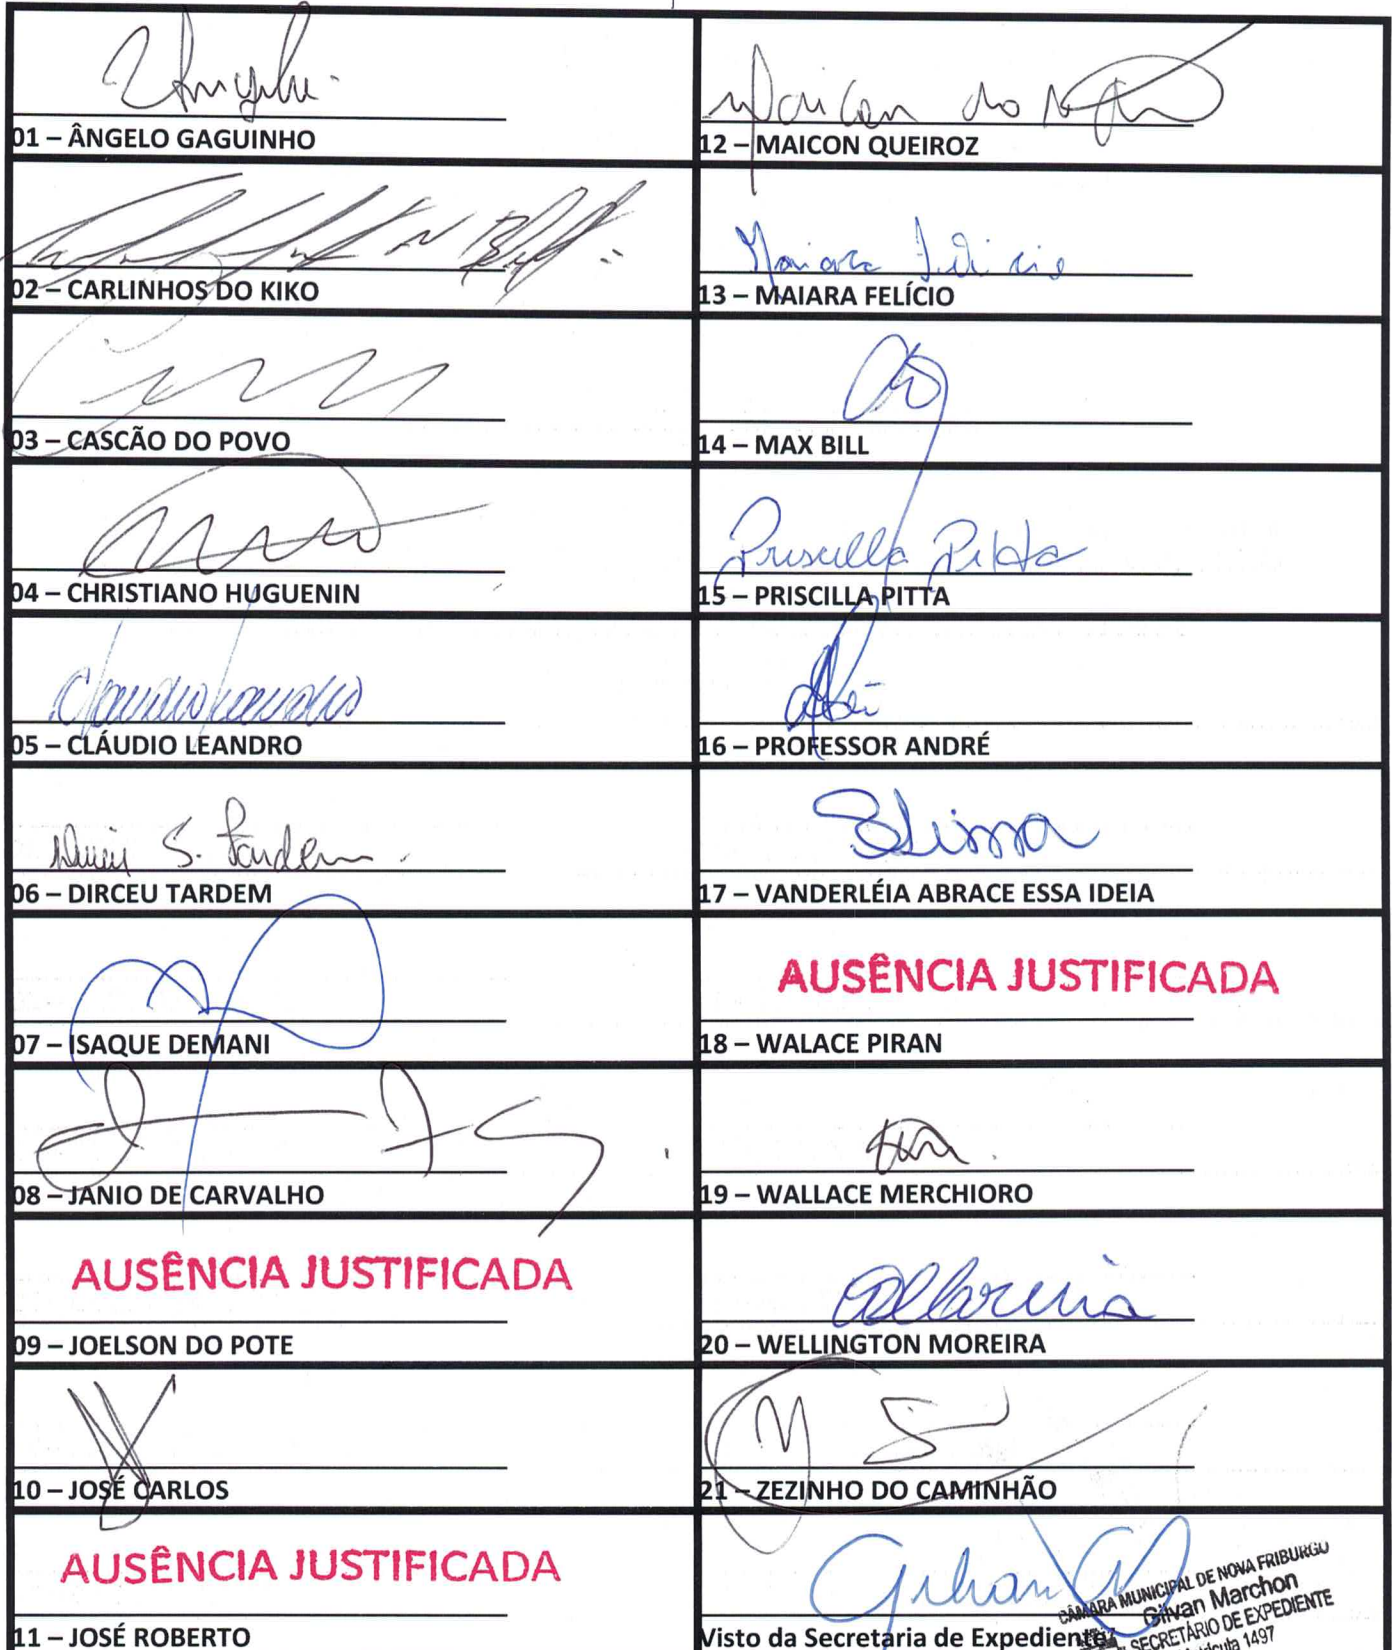 01 – ÂNGELO GAGUINHO
02 – CARLINHOS DO KIKO
03 – CASCÃO DO POVO
04 – CHRISTIANO HUGUENIN
Claudio Leandro
05 – CLÁUDIO LEANDRO
Dirceu S. Tardem
06 – DIRCEU TARDEM
07 – ISAQUE DEMANI
08 – JANIO DE CARVALHO
AUSÊNCIA JUSTIFICADA
09 – JOELSON DO POTE
10 – JOSÉ CARLOS
AUSÊNCIA JUSTIFICADA
11 – JOSÉ ROBERTO
Maicon do
12 – MAICON QUEIROZ
Maiara Felicio
13 – MAIARA FELÍCIO
14 – MAX BILL
Priscilla Pitta
15 – PRISCILLA PITTA
16 – PROFESSOR ANDRÉ
17 – VANDERLÉIA ABRACE ESSA IDEIA
AUSÊNCIA JUSTIFICADA
18 – WALACE PIRAN
19 – WALLACE MERCHIORO
20 – WELLINGTON MOREIRA
21 – ZEZINHO DO CAMINHÃO
Gilvan
CÂMARA MUNICIPAL DE NOVA FRIBURGO
Gilvan Marchon
SECRETÁRIO DE EXPEDIENTE
1497
Visto da Secretaria de Expediente: